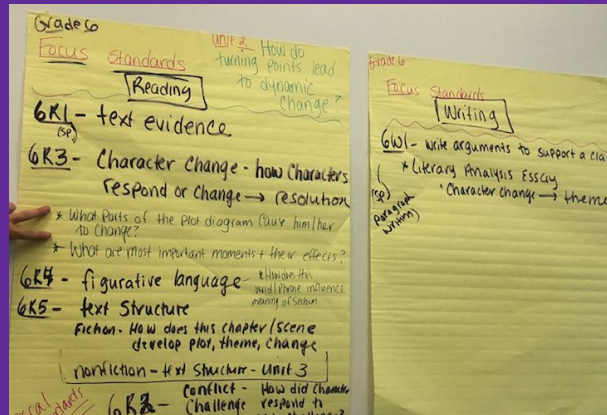 Grade 6
Focus Standards
Unit 2: How do
turning points lead
to dynamic
change?
Reading
6R1 - text evidence
(sp.)
6R3 - Character Change - how Characters
respond or change → resolution
* What parts of the plot diagram cause him/her
to change?
* What are most important moments + their effects?
6R4 - figurative language
* How does this
word/phrase influence
meaning of
6R5 - text Structure
Fiction - How does this chapter/scene
develop plot, theme, change
nonfiction - text structure - Unit 3
Conflict - How did
Challenge respond to
Grade 6
Focus Standards
Writing
6W1 - write arguments to support a
* Literary Analysis Essay
Character change → theme
(sp)
Paragraph
Writing)